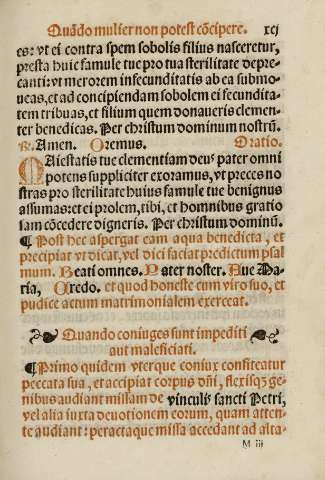 Quãdo mulier non potest cõcipere. xcj
es: vt ei contra spem sobolis filius nasceretur,
presta huic famule tue pro tua sterilitate depre-
canti: vt merorem infecunditatis ab ea submo-
ueas, et ad concipiendam sobolem ei fecundita-
tem tribuas, et filium quem donaueris clemen-
ter benedicas. Per christum dominum nostrũ.
℟. Amen. Oremus. Oratio.
Maiestatis tue clementiam deus pater omni
potens suppliciter exoramus, vt preces no
stras pro sterilitate huius famule tue benignus
assumas: et ei prolem, tibi, et hominibus gratio
sam cõcedere digneris. Per christum dominũ.
¶ Post hec aspergat eam aqua benedicta, et
precipiat vt dicat, vel dici faciat predictum psal
mum. Beati omnes. Pater noster. Aue Ma-
ria, Credo. et quod honeste cum viro suo, et
pudice actum matrimonialem exerceat.
Quando coniuges sunt impediti
aut maleficiati.
¶ Primo quidem vterque coniux confiteatur
peccata sua, et accipiat corpus dñi, flexisqʒ ge-
nibus audiant missam de vinculis sancti Petri,
vel alia iuxta deuotionem eorum, quam atten-
te audiant: peractaque missa accedant ad alta-
M iij